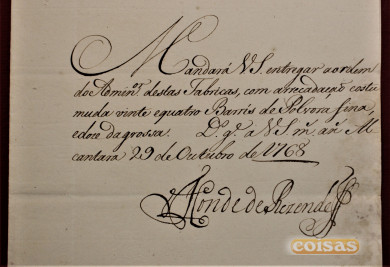 Mandará V.S. entregar a ordem
do Admin.or destas Fabricas, com arrecadação costu
muda vinte equatro Barris de Polvora fina,
edoze dagrossa. D.s g.e a V.S. m.s an.s
cantara 29 de Outubro de 1768
Conde de Rezende
coisas